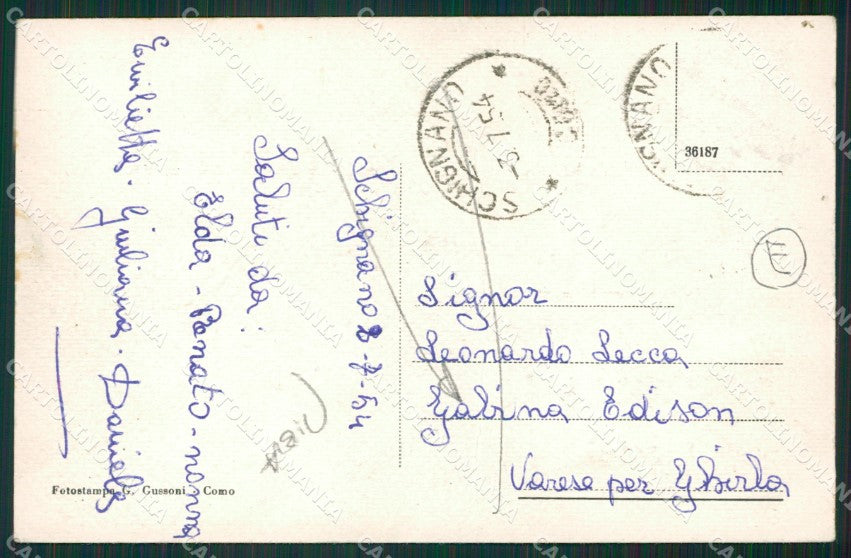 Schignano 8-7-54
Saluti da:
Elda - Renato - nonna
Emilietta - Giuliana - Daniela
Fotostampa G. Gussoni - Como
SCHIGNANO
-8 7 54
36187
E
Signor
Leonardo Lecca
Gabina Edison
Varese per Ghirla